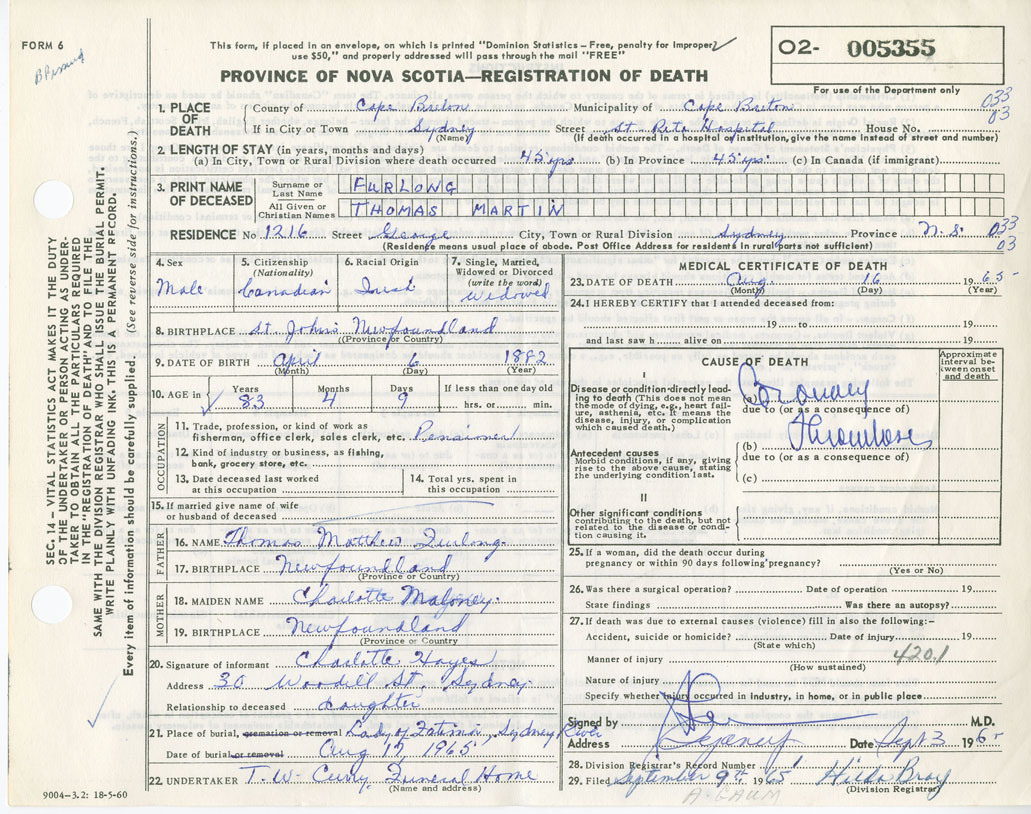 FORM 6
This form, if placed in an envelope, on which is printed "Dominion Statistics – Free, penalty for improper
use $50," and properly addressed will pass through the mail "FREE"
PROVINCE OF NOVA SCOTIA—REGISTRATION OF DEATH
O2- 005355
For use of the Department only
SEC. 14 – VITAL STATISTICS ACT MAKES IT THE DUTY
OF THE UNDERTAKER OR PERSON ACTING AS UNDER-
TAKER TO OBTAIN ALL THE PARTICULARS REQUIRED
IN THE "REGISTRATION OF DEATH" AND TO FILE THE
SAME WITH THE DIVISION REGISTRAR WHO SHALL ISSUE THE BURIAL PERMIT.
WRITE PLAINLY WITH UNFADING INK. THIS IS A PERMANENT RECORD.
Every item of information should be carefully supplied. (See reverse side for instructions.)
1. PLACE OF DEATH
County of Cape Breton Municipality of Cape Breton 033
If in City or Town Sydney Street St Rita Hospital House No. 03
(Name) (If death occurred in a hospital or institution, give the name instead of street and number)
2. LENGTH OF STAY (in years, months and days)
(a) In City, Town or Rural Division where death occurred 45 yrs (b) In Province 45 yrs. (c) In Canada (if immigrant)
3. PRINT NAME OF DECEASED
Surname or Last Name FURLONG
All Given or Christian Names THOMAS MARTIN
RESIDENCE No 1216 Street George City, Town or Rural Division Sydney Province N.S. 033
(Residence means usual place of abode. Post Office Address for residents in rural parts not sufficient) 03
4. Sex Male
5. Citizenship (Nationality) Canadian
6. Racial Origin Irish
7. Single, Married, Widowed or Divorced (write the word) Widowed
8. BIRTHPLACE St. John's Newfoundland
(Province or Country)
9. DATE OF BIRTH April 6 1882
(Month) (Day) (Year)
10. AGE in Years 83 Months 4 Days 9 If less than one day old hrs. or min.
OCCUPATION
11. Trade, profession, or kind of work as
fisherman, office clerk, sales clerk, etc. Pensioner
12. Kind of industry or business, as fishing,
bank, grocery store, etc.
13. Date deceased last worked
at this occupation
14. Total yrs. spent in
this occupation
15. If married give name of wife
or husband of deceased
FATHER
16. NAME Thomas Matthew Furlong
17. BIRTHPLACE Newfoundland
(Province or Country)
MOTHER
18. MAIDEN NAME Charlotte Maloney
19. BIRTHPLACE Newfoundland
(Province or Country)
20. Signature of informant Charlotte Hayes
Address 30 Woodill St. Sydney
Relationship to deceased Daughter
21. Place of burial, cremation or removal Lady of Fatima, Sydney River
Date of burial or removal Aug 17, 1965
22. UNDERTAKER T. W. Curry Funeral Home
(Name and address)
9004–3.2: 18-5-60
MEDICAL CERTIFICATE OF DEATH
23. DATE OF DEATH Aug. 16 1965
(Month) (Day) (Year)
24. I HEREBY CERTIFY that I attended deceased from:
19 to 19
and last saw h alive on 19
CAUSE OF DEATH
Approximate interval between onset and death
I
Disease or condition directly lead-
ing to death (This does not mean
the mode of dying, e.g., heart fail-
ure, asthenia, etc. It means the
disease, injury, or complication
which caused death.)
(a) Coronary
due to (or as a consequence of)
Thrombosis
Antecedent causes
Morbid conditions, if any, giving
rise to the above cause, stating
the underlying condition last.
(b)
due to (or as a consequence of)
(c)
II
Other significant conditions
contributing to the death, but not
related to the disease or condi-
tion causing it.
25. If a woman, did the death occur during
pregnancy or within 90 days following pregnancy?
(Yes or No)
26. Was there a surgical operation? Date of operation 19
State findings Was there an autopsy?
27. If death was due to external causes (violence) fill in also the following:–
Accident, suicide or homicide? Date of injury 19
(State which)
420.1
Manner of injury
(How sustained)
Nature of injury
Specify whether injury occurred in industry, in home, or in public place
Signed by M.D.
Address Sydney Date Sept 3 1965
28. Division Registrar's Record Number 1
29. Filed September 9th 1965 Hilda Bray
(Division Registrar)
A. GAUM